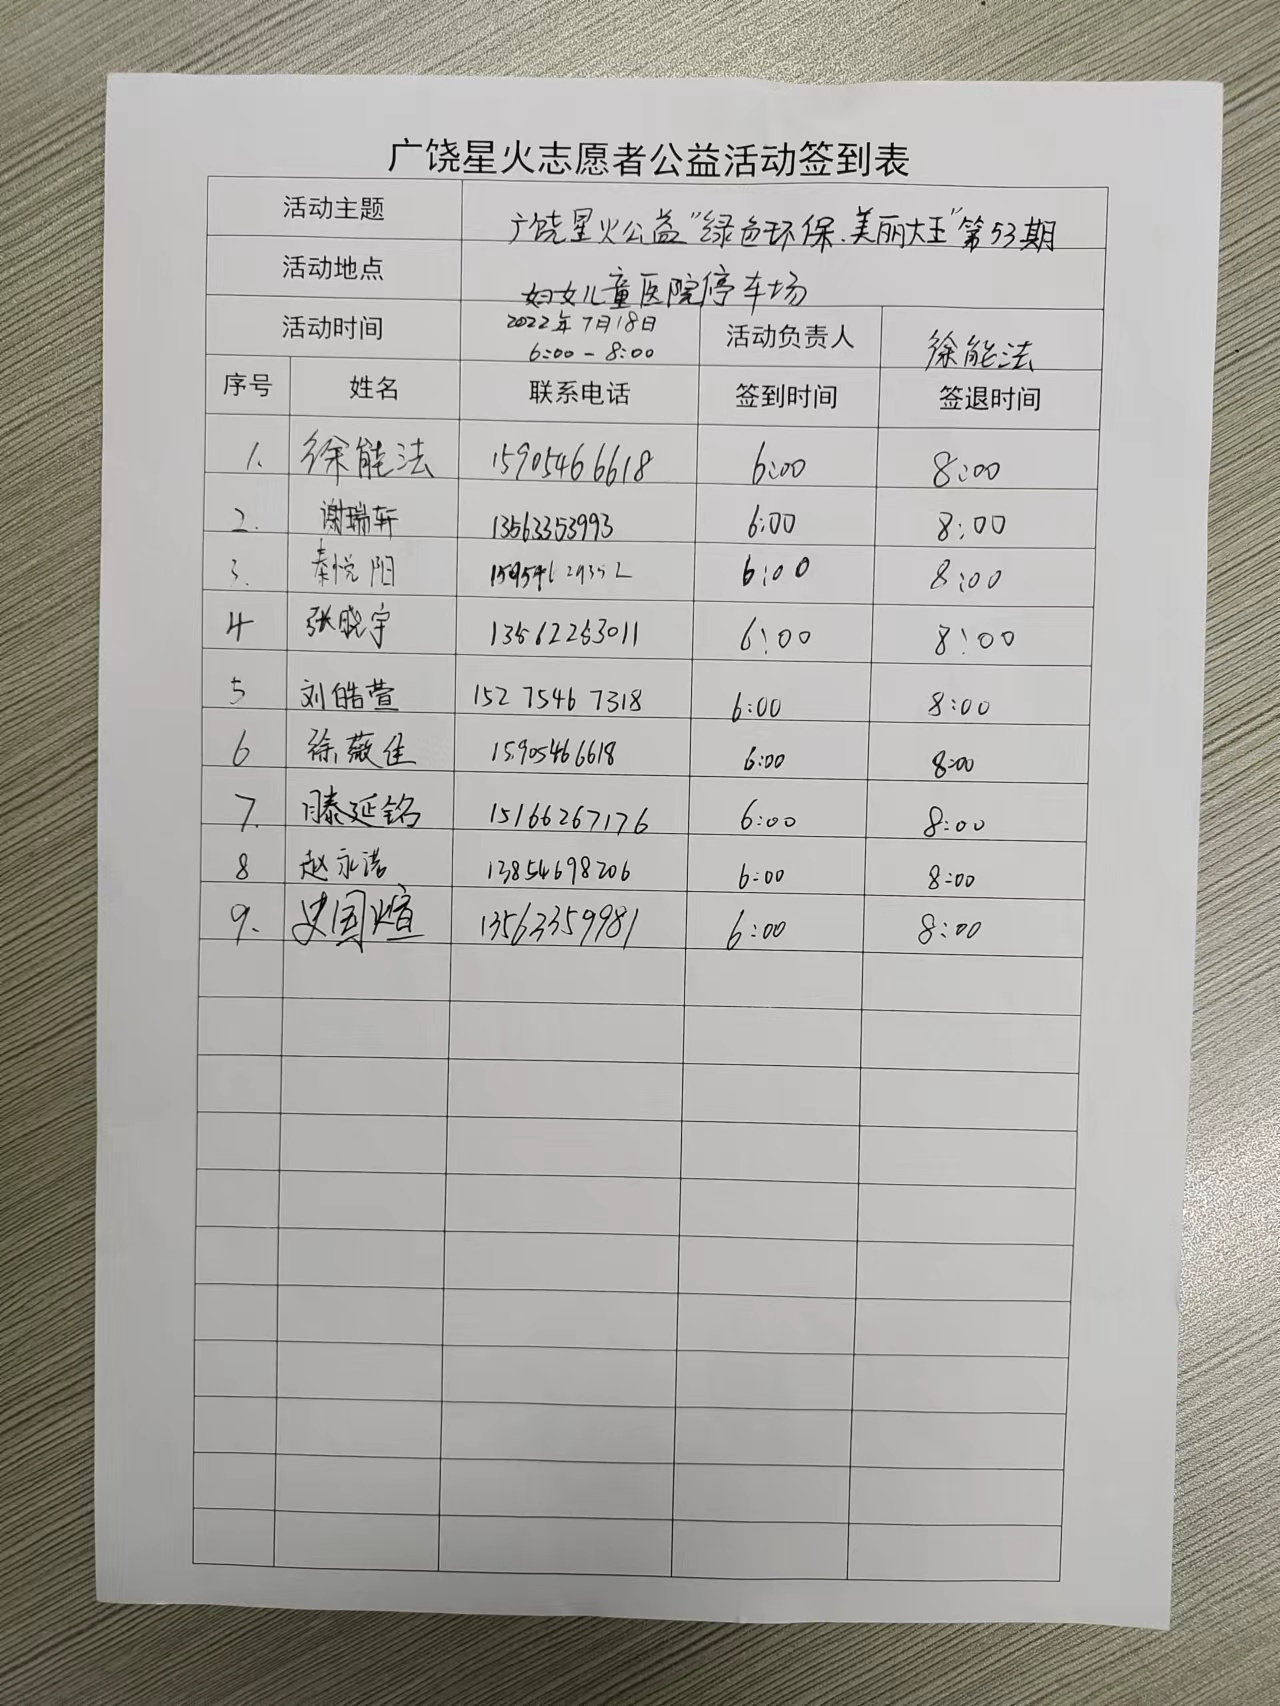 广饶星火志愿者公益活动签到表
活动主题 广饶星火公益“绿色环保.美丽大王”第53期
活动地点 妇女儿童医院停车场
活动时间 2022年7月18日 6:00-8:00 活动负责人 徐能法
序号 姓名 联系电话 签到时间 签退时间
1. 徐能法 15905466618 6:00 8:00
2. 谢瑞轩 13563353993 6:00 8:00
3. 秦悦阳 6:00 8:00
4 张晓宇 13562263011 6:00 8:00
5 刘皓萱 152 7546 7318 6:00 8:00
6 徐薇佳 15905466618 6:00 8:00
7. 滕延铭 15166267176 6:00 8:00
8 赵永浩 13854698206 6:00 8:00
9. 史国煊 13563359981 6:00 8:00